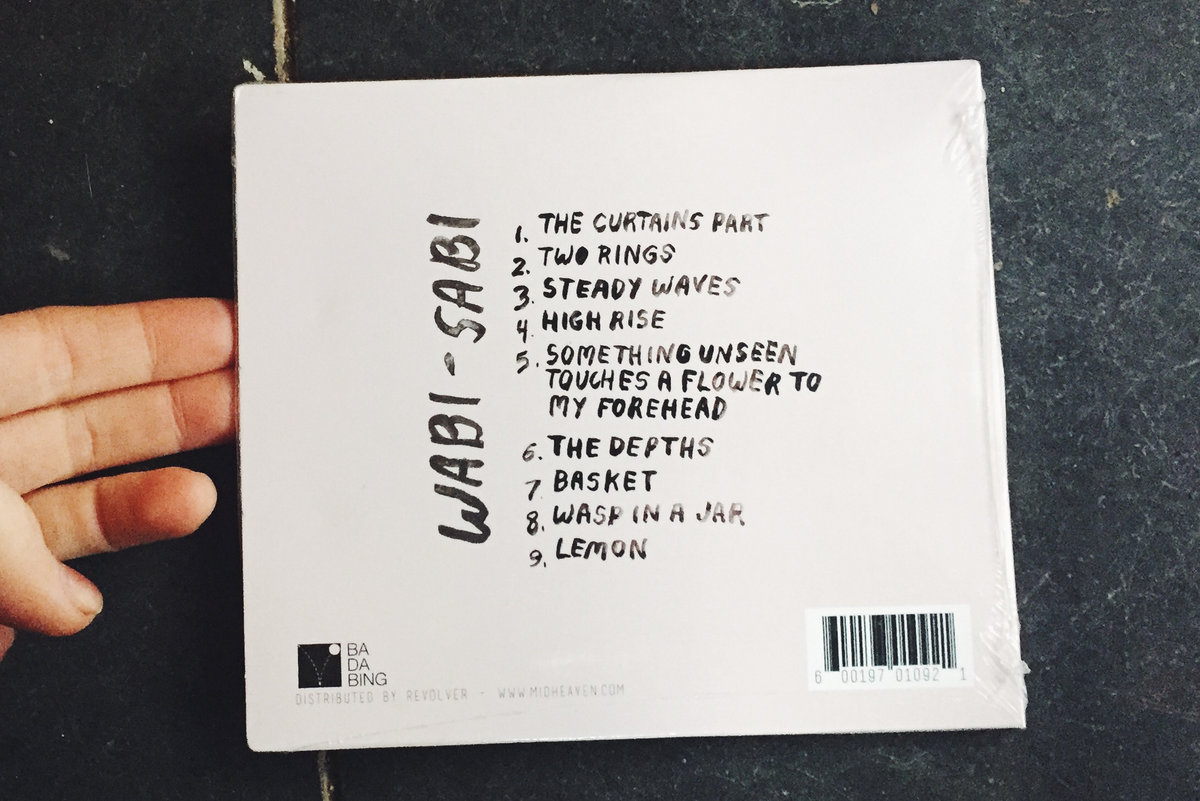 WABI-SABI
1. THE CURTAINS PART
2. TWO RINGS
3. STEADY WAVES
4. HIGH RISE
5. SOMETHING UNSEEN
TOUCHES A FLOWER TO
MY FOREHEAD
6. THE DEPTHS
7. BASKET
8. WASP IN A JAR
9. LEMON
BA
DA
BING
DISTRIBUTED BY REVOLVER - WWW.MIDHEAVEN.COM
6 00197 01092 1